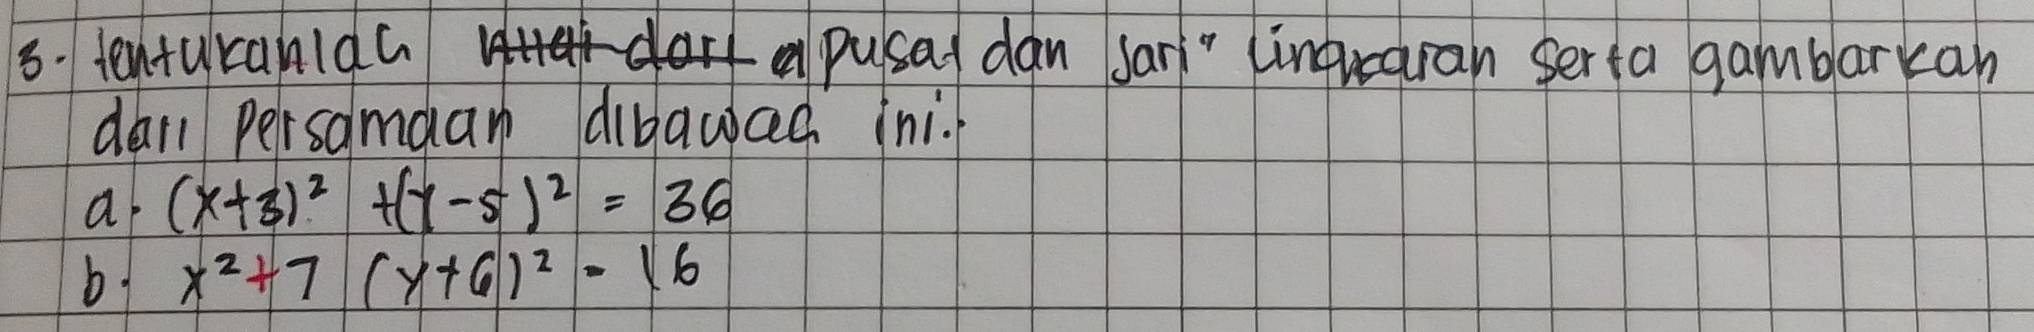 3. tentukanlah pusat dan jari" lingkaran serta gambarkan
dari persamaan dibawah ini.
a. (x+3)² +(y-5)² = 36
b. x²+7 (y+6)² = 16